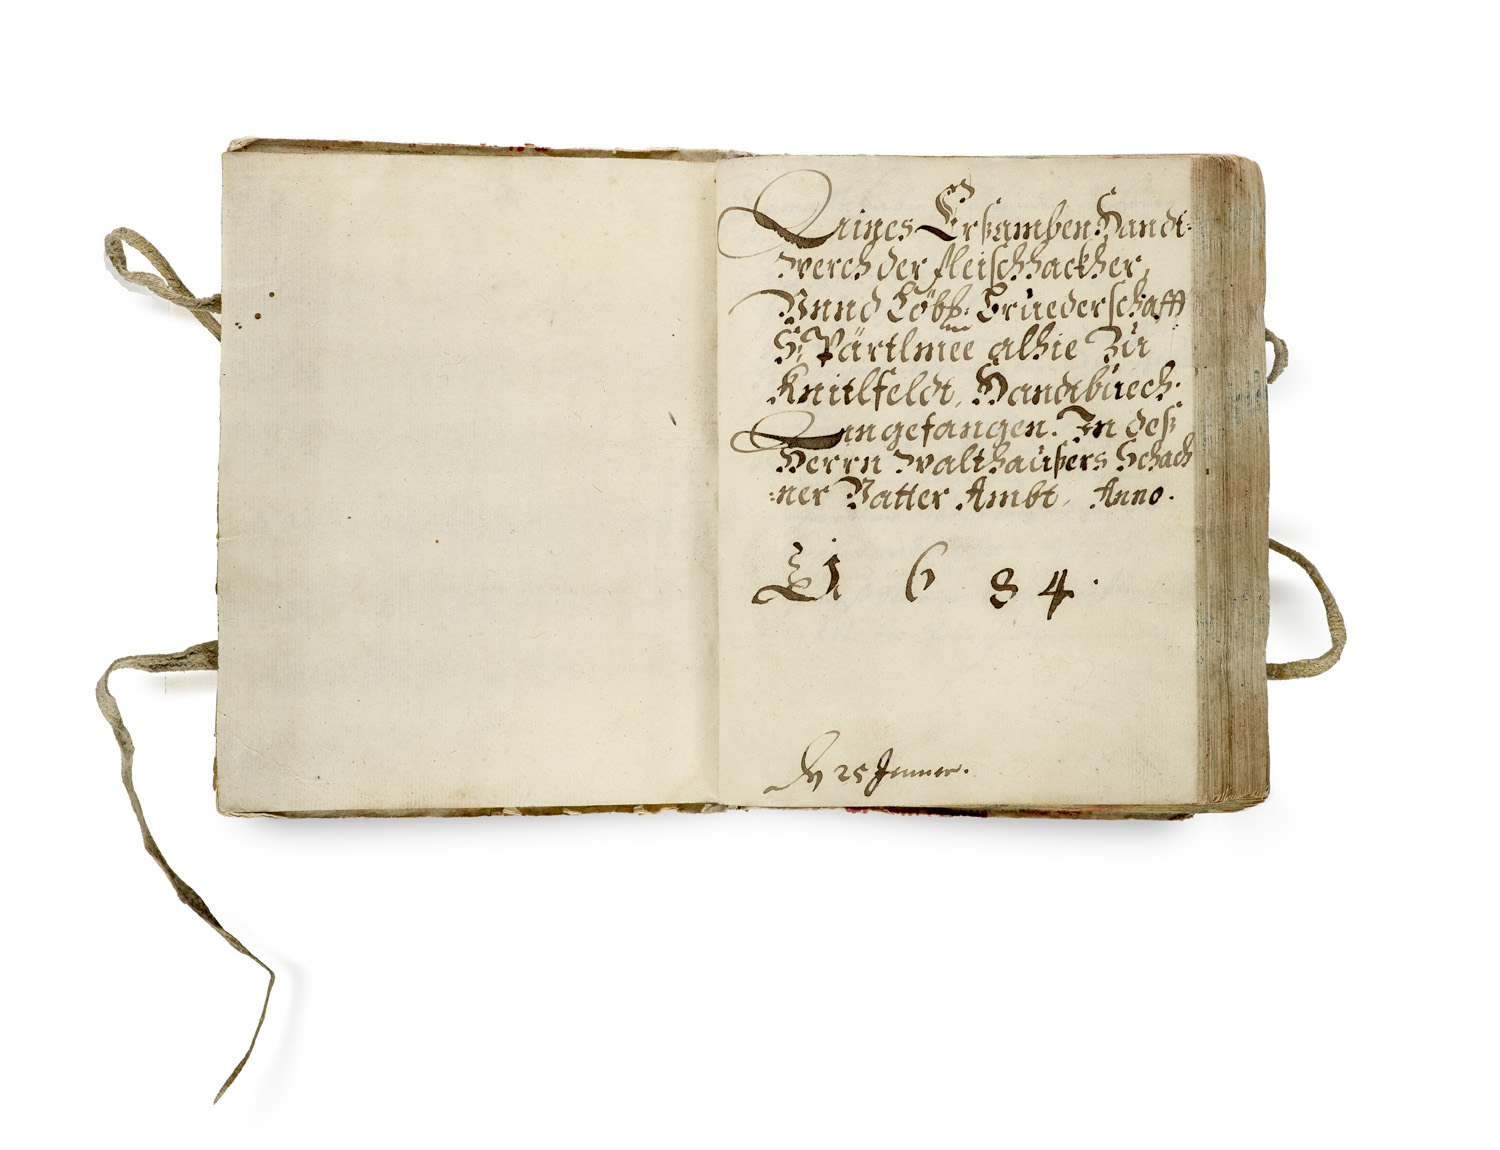 Aines Ersamben Handt-
werch der fleischhackher,
Vnnd Löbl: Brùederschafft
S: Pärtlmee alhie Zù
Knitlfeldt, Handtbùech.
Angefangen. In deß
Herrn walthaùßers Schach
:ner Vatter Ambt, Anno.
1 6 8 4.
Dn 25 Jenner.